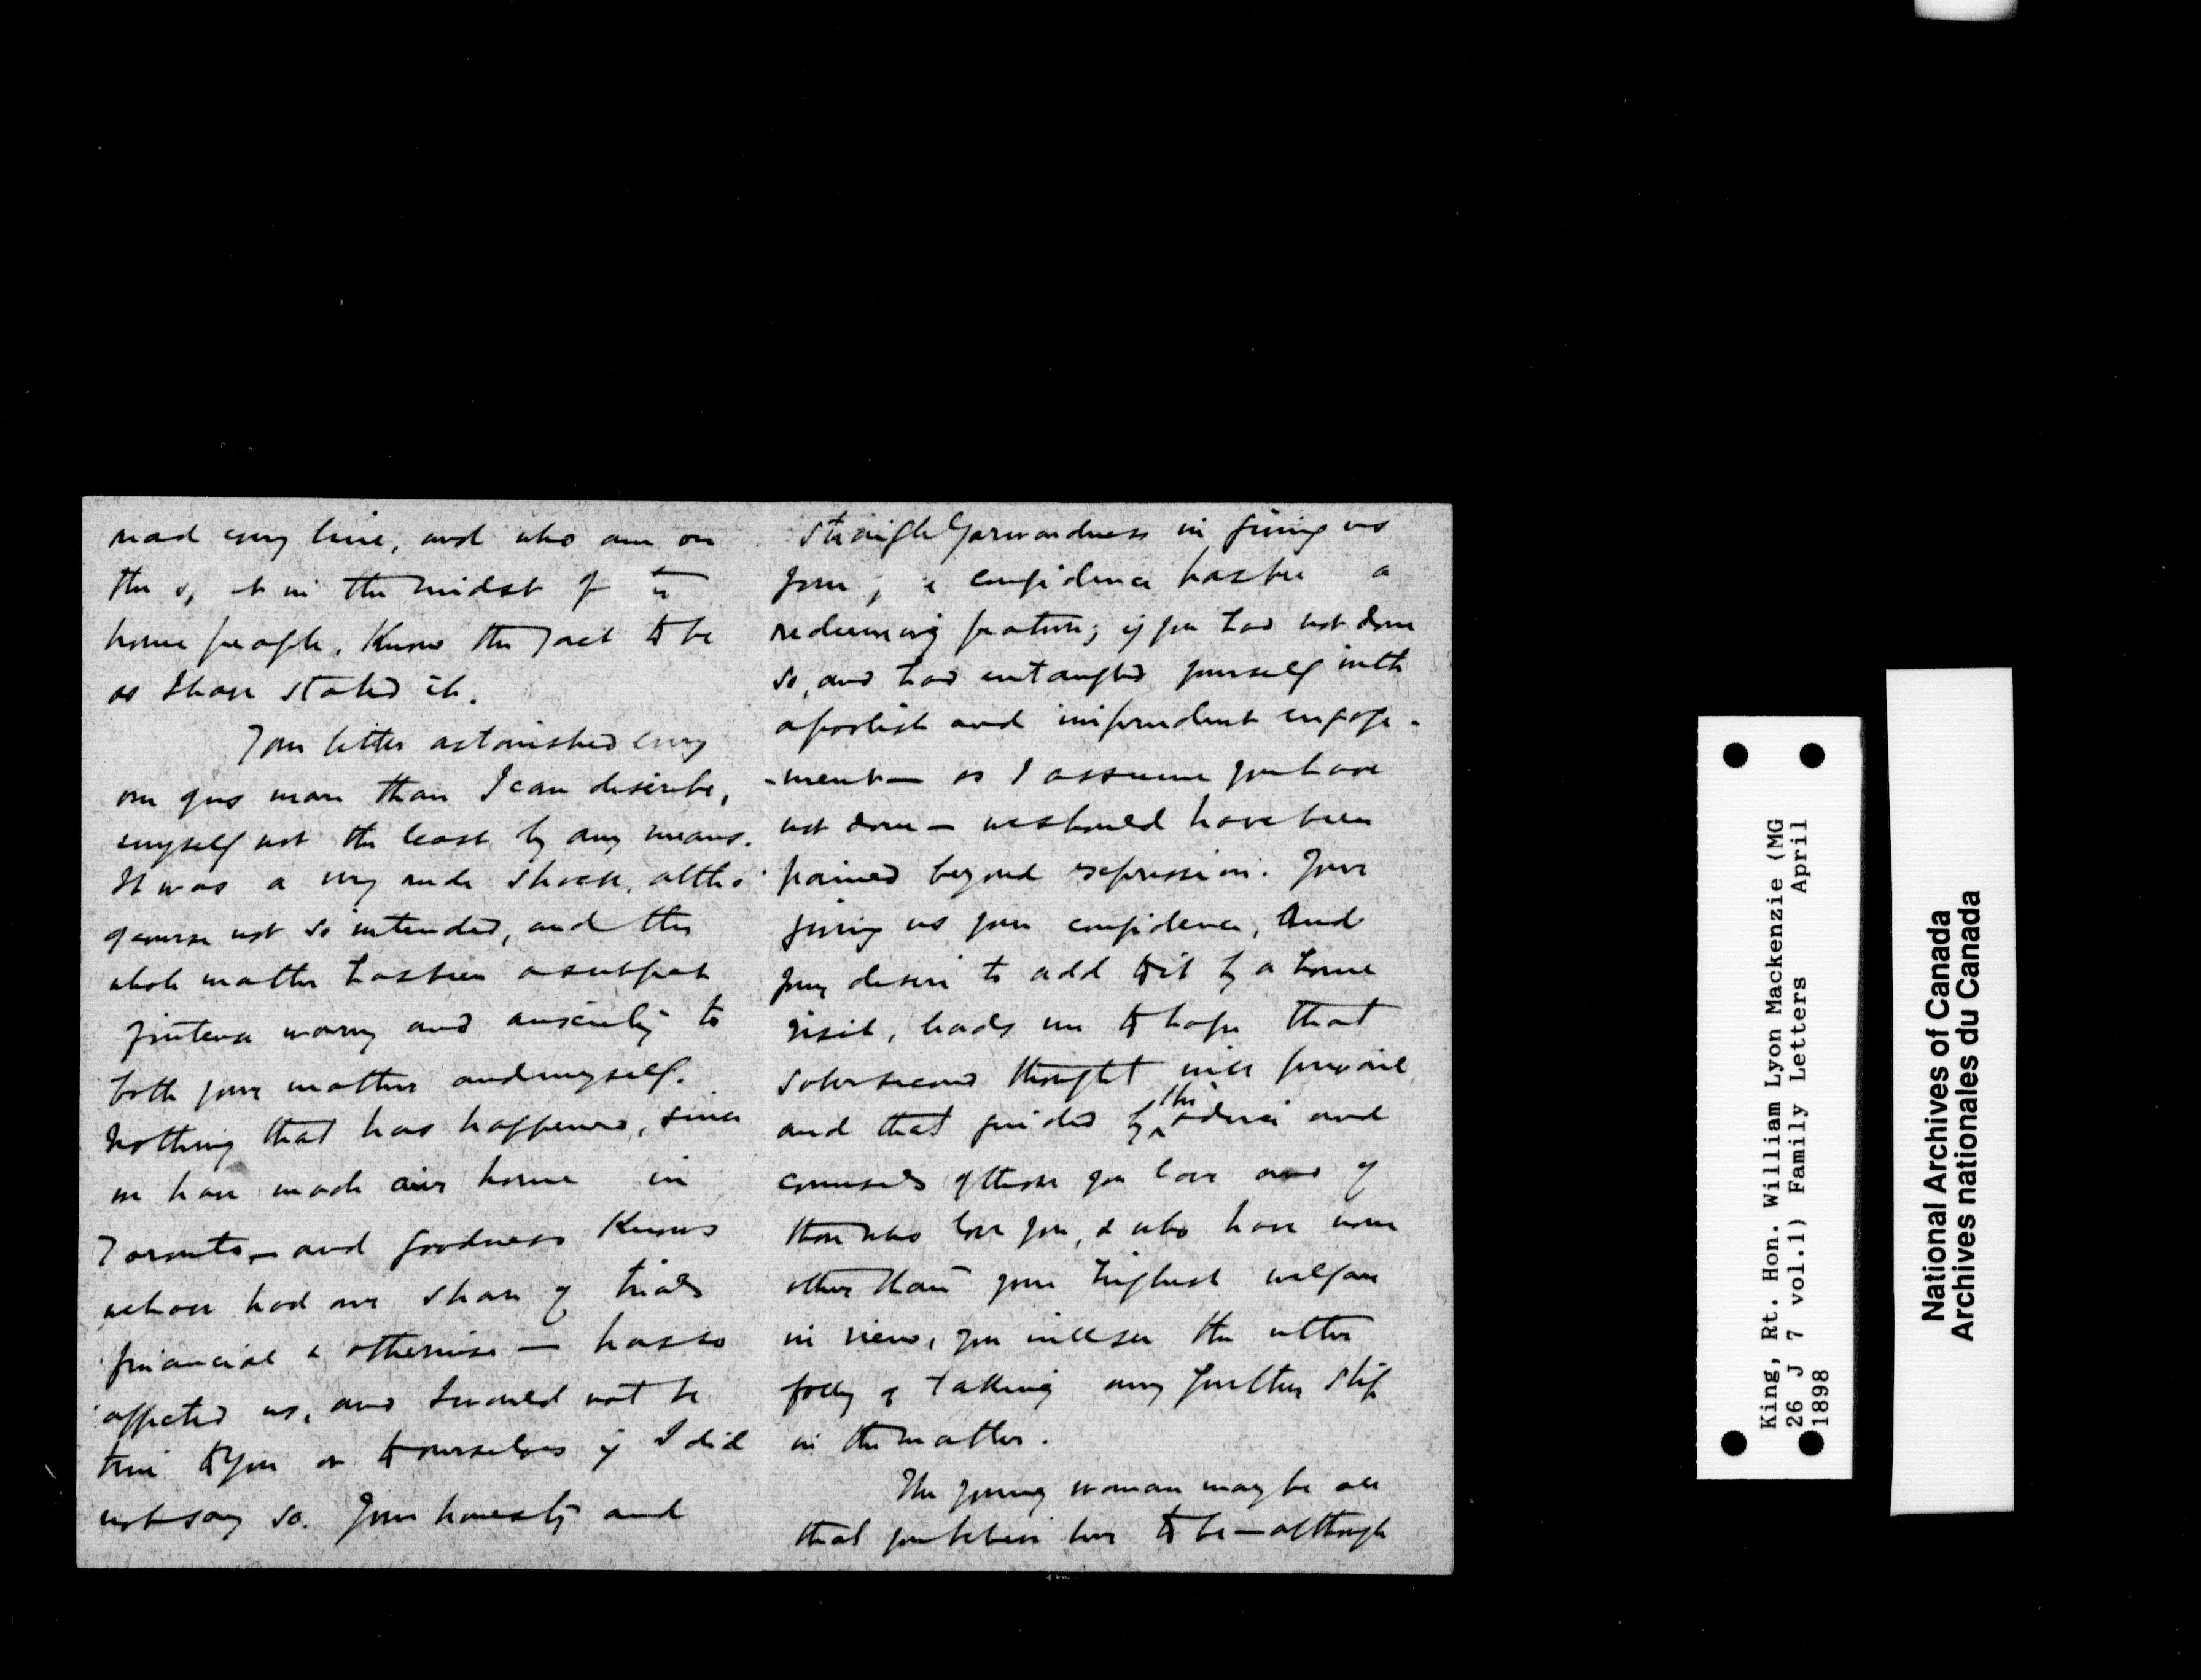 read every line, and who are on
the spot in the midst of the
home people, know the fact to be
as I have stated it.
Your letter astonished every
one of us more than I can describe,
myself not the least by any means.
It was a very rude shock, altho'
of course not so intended, and the
whole matter has been a subject
of intense worry and anxiety to
both your mother and myself.
Nothing that has happened, since
we have made our home in
Toronto, — and goodness knows
we have had our share of trials
financial & otherwise — has so
affected us, and I would not be
true to you or to ourselves if I did
not say so. Your honesty and
straightforwardness in giving us
your confidence has been a
redeeming feature; if you had not done
so, and had entangled yourself with
a foolish and imprudent engage-
-ment — as I assume you have
not done — we should have been
pained beyond expression. Your
giving us your confidence, and
your desire to add to it by a home
visit, leads me to hope that
sober second thought will prevail
and that guided by the advice and
counsels of those you love and of
those who love you, & who have none
other than your highest welfare
in view, you will see the utter
folly of taking any further step
in the matter.
The young woman may be all
that you believe her to be — although
King, Rt. Hon. William Lyon Mackenzie (MG
26 J 7 vol.1) Family Letters April
1898
National Archives of Canada
Archives nationales du Canada